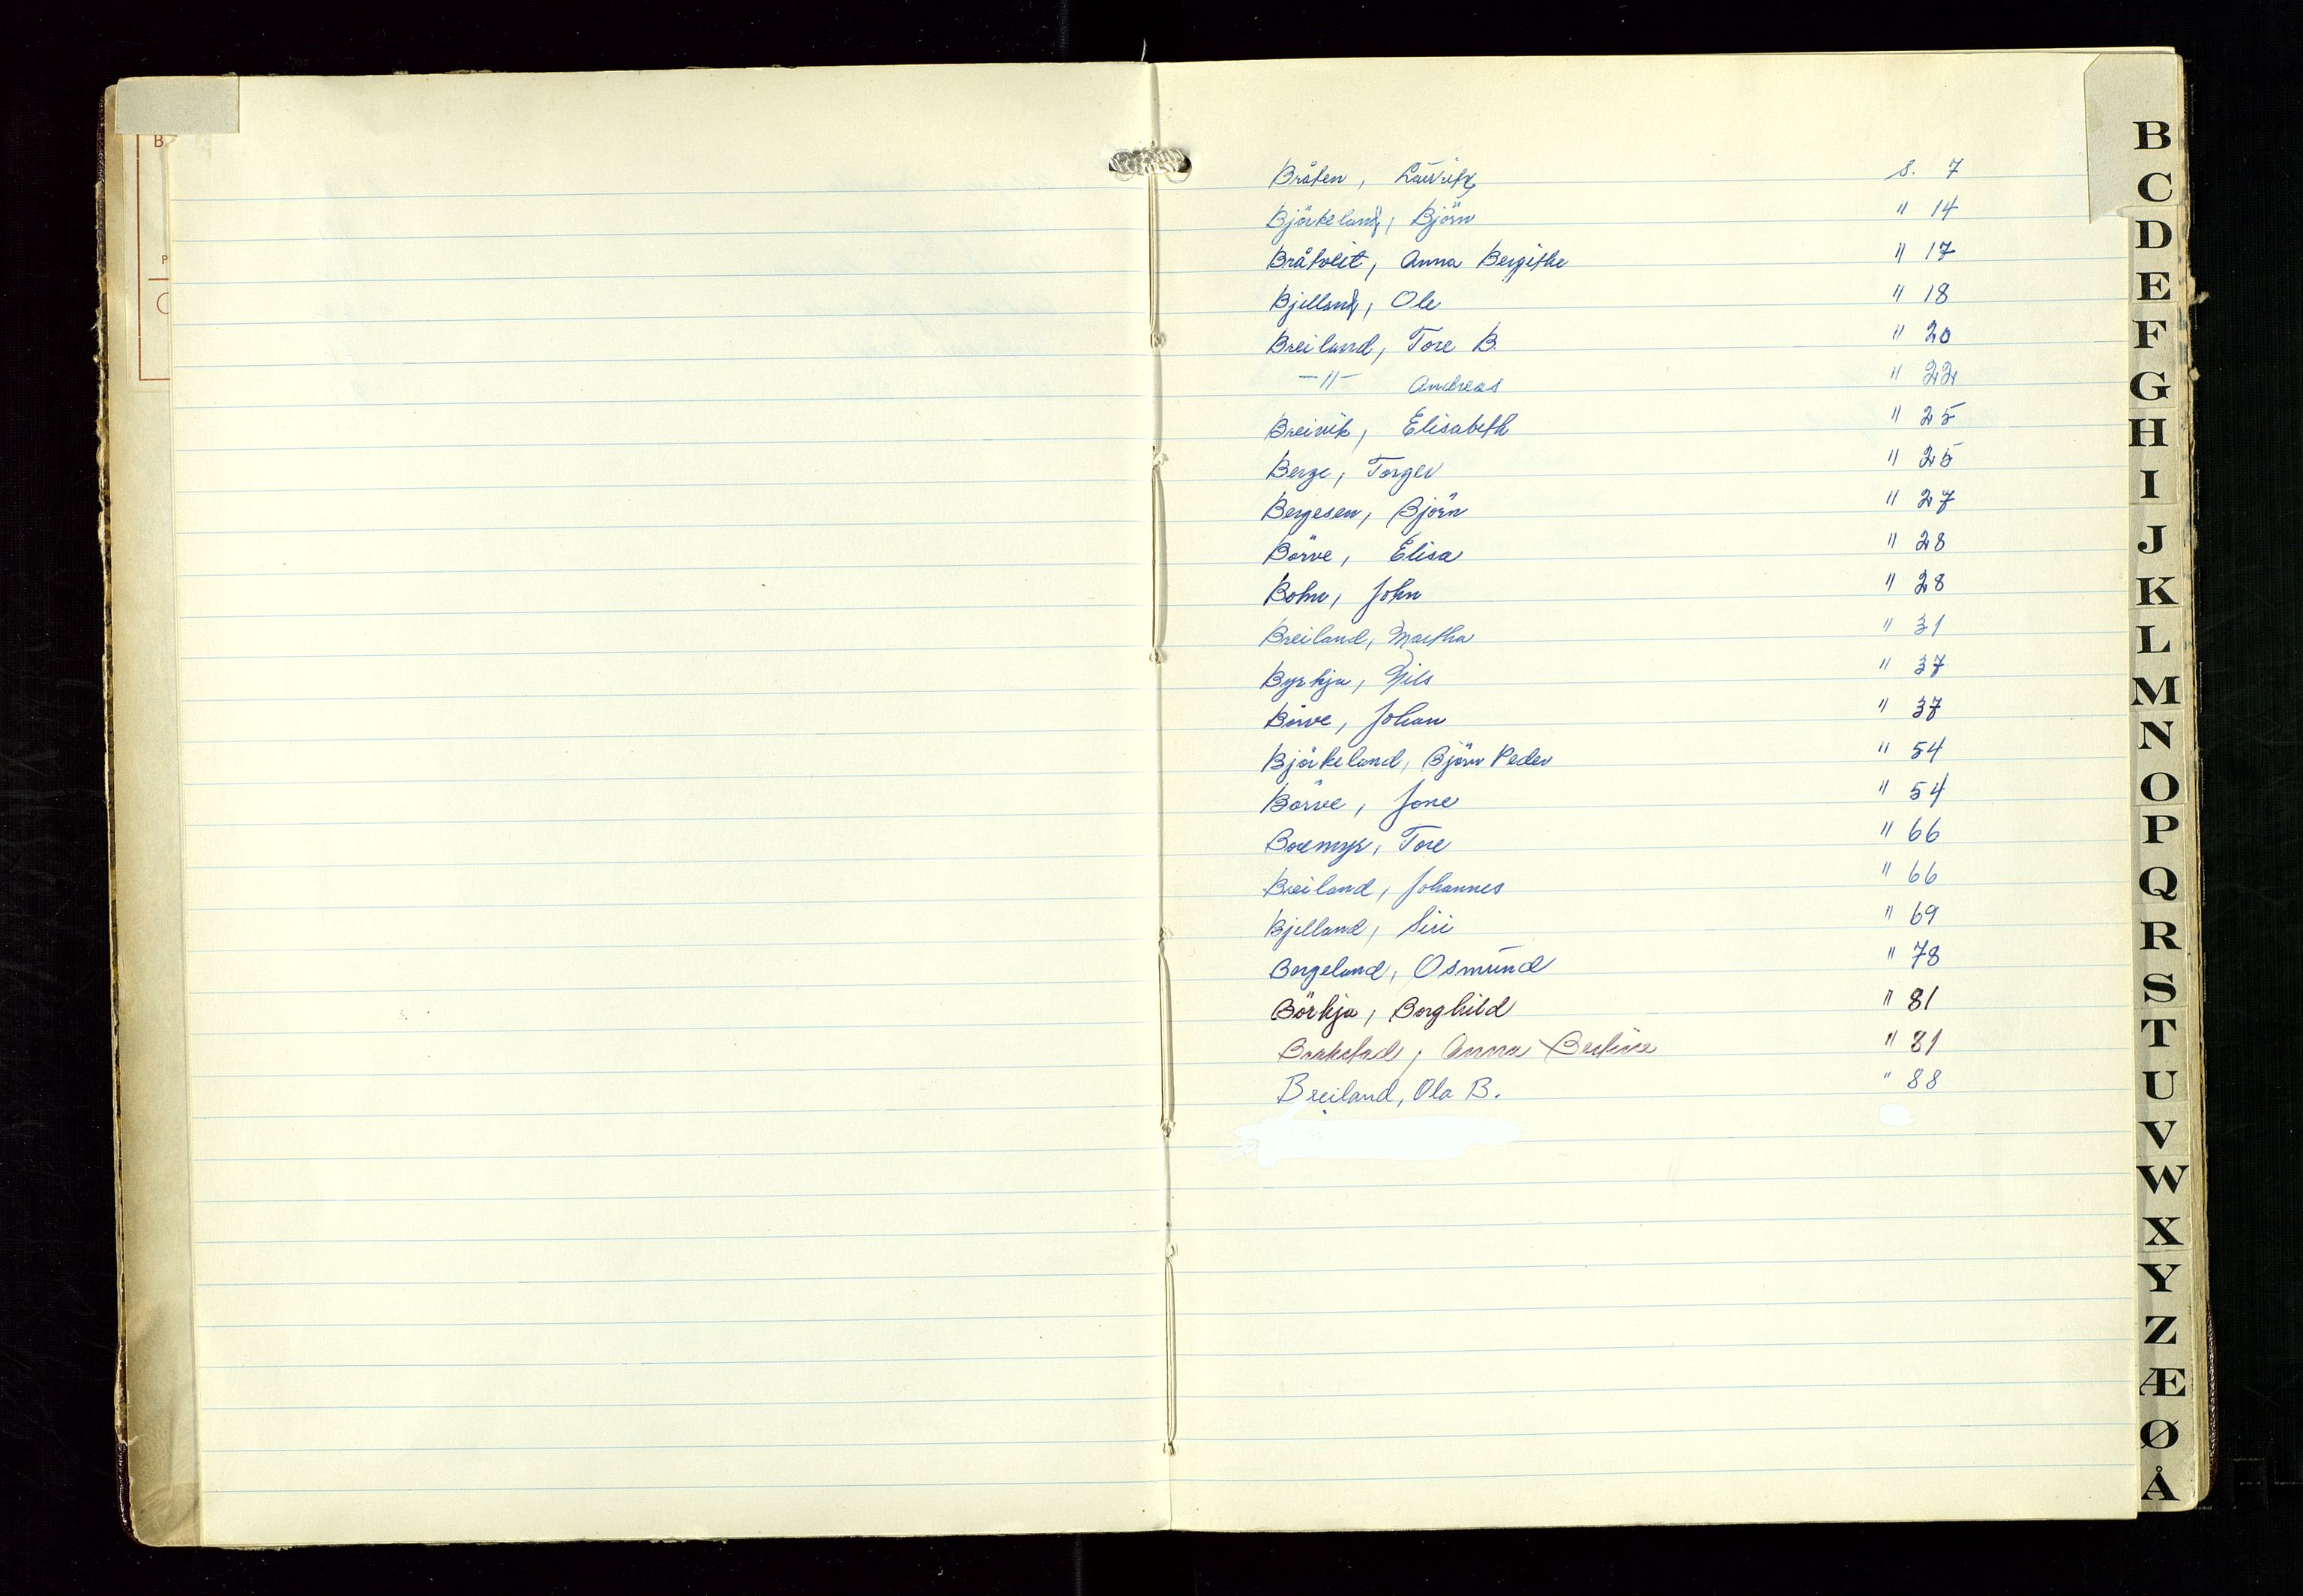 Bråten, Lauritz s. 7
Bjørkeland, Björn " 14
Bråtveit, Anna Bergithe " 17
Bjelland, Ole " 18
Breiland, Tore B. " 20
—"— Andreas " 22
Breivik, Elisabeth " 25
Berge, Torger " 25
Bergesen, Björn " 27
Börve, Elisa " 28
Bohn, John " 28
Breiland, Martha " 31
Byrkja, Nils " 37
Börve, Johan " 37
Björkeland, Björn Peder " 54
Börve, Jone " 54
Boremyr, Tore " 66
Breiland, Johannes " 66
Bjelland, Siri " 69
Bergeland, Osmund " 78
Börkja, Borghild " 81
Anna " 81
Breiland, Ola B. " 88
B
C
D
E
F
G
H
I
J
K
L
M
N
O
P
Q
R
S
T
U
V
W
X
Y
Z
Æ
Ø
Å